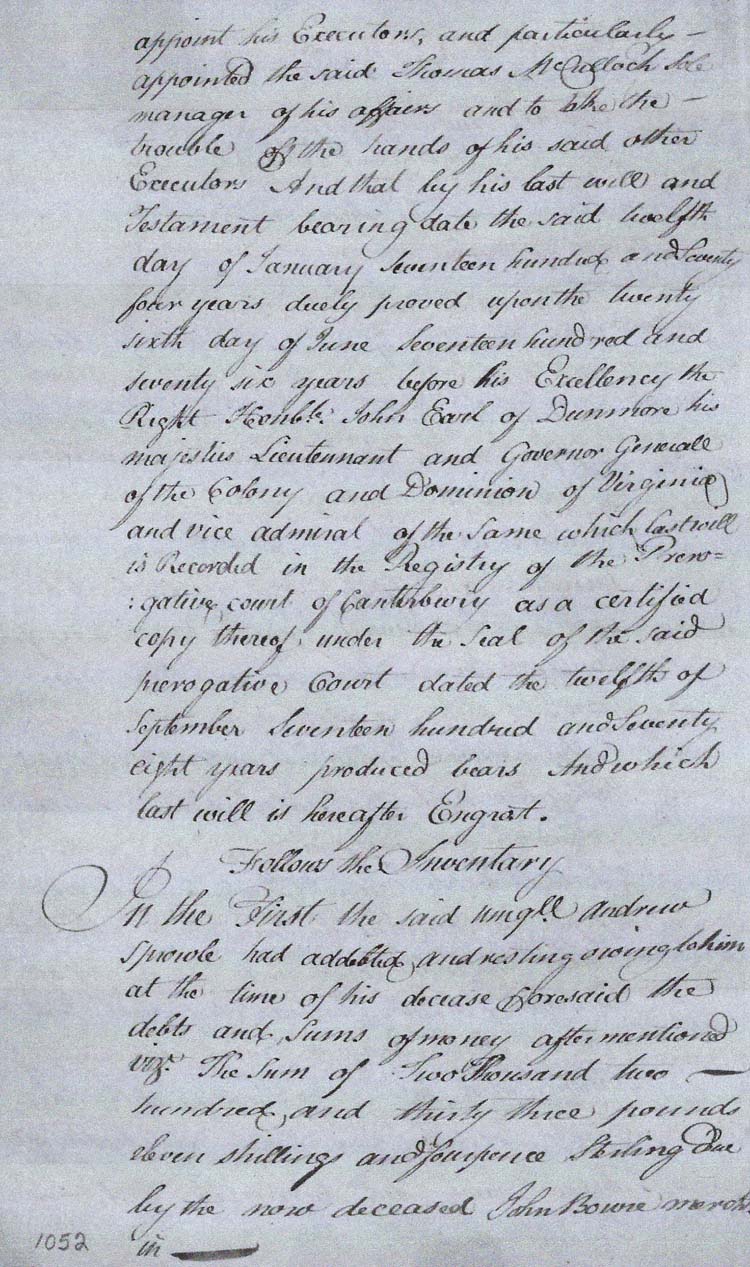 appoint his Executors, and particularly –
appointed the said Thomas McCulloch Sole
manager of his affairs and to take the –
trouble off the hands of his said other
Executors And that by his last will and
Testament bearing date the said twelfth
day of January Seventeen hundred and Seventy
four years duely proved upon the twenty
sixth day of June Seventeen hundred and
seventy six years before his Excellency the
Right Honble. John Earl of Dunmore his
majesties Lieutennant and Governor Generall
of the Colony and Dominion of Virginia
and vice admiral of the same which last will
is Recorded in the Registry of the Prero=
:gative court of Canterbury as a certified
copy thereof under the Seal of the said
prerogative Court dated the twelfth of
September Seventeen hundred and Seventy
eight years produced bears And which
last will is hereafter Engrost.
Follows the Inventary
In the First the said umqll. Andrew
Sprowle had addebted and resting owing to him
at the time of his decease foresaid the
debts and Sums of money after mentioned
vizt. The Sum of Two Thousand two —
hundred and thirty three pounds
eleven shillings and fourpence Sterling due
by the now deceased John Bowie mercht
in —
1052